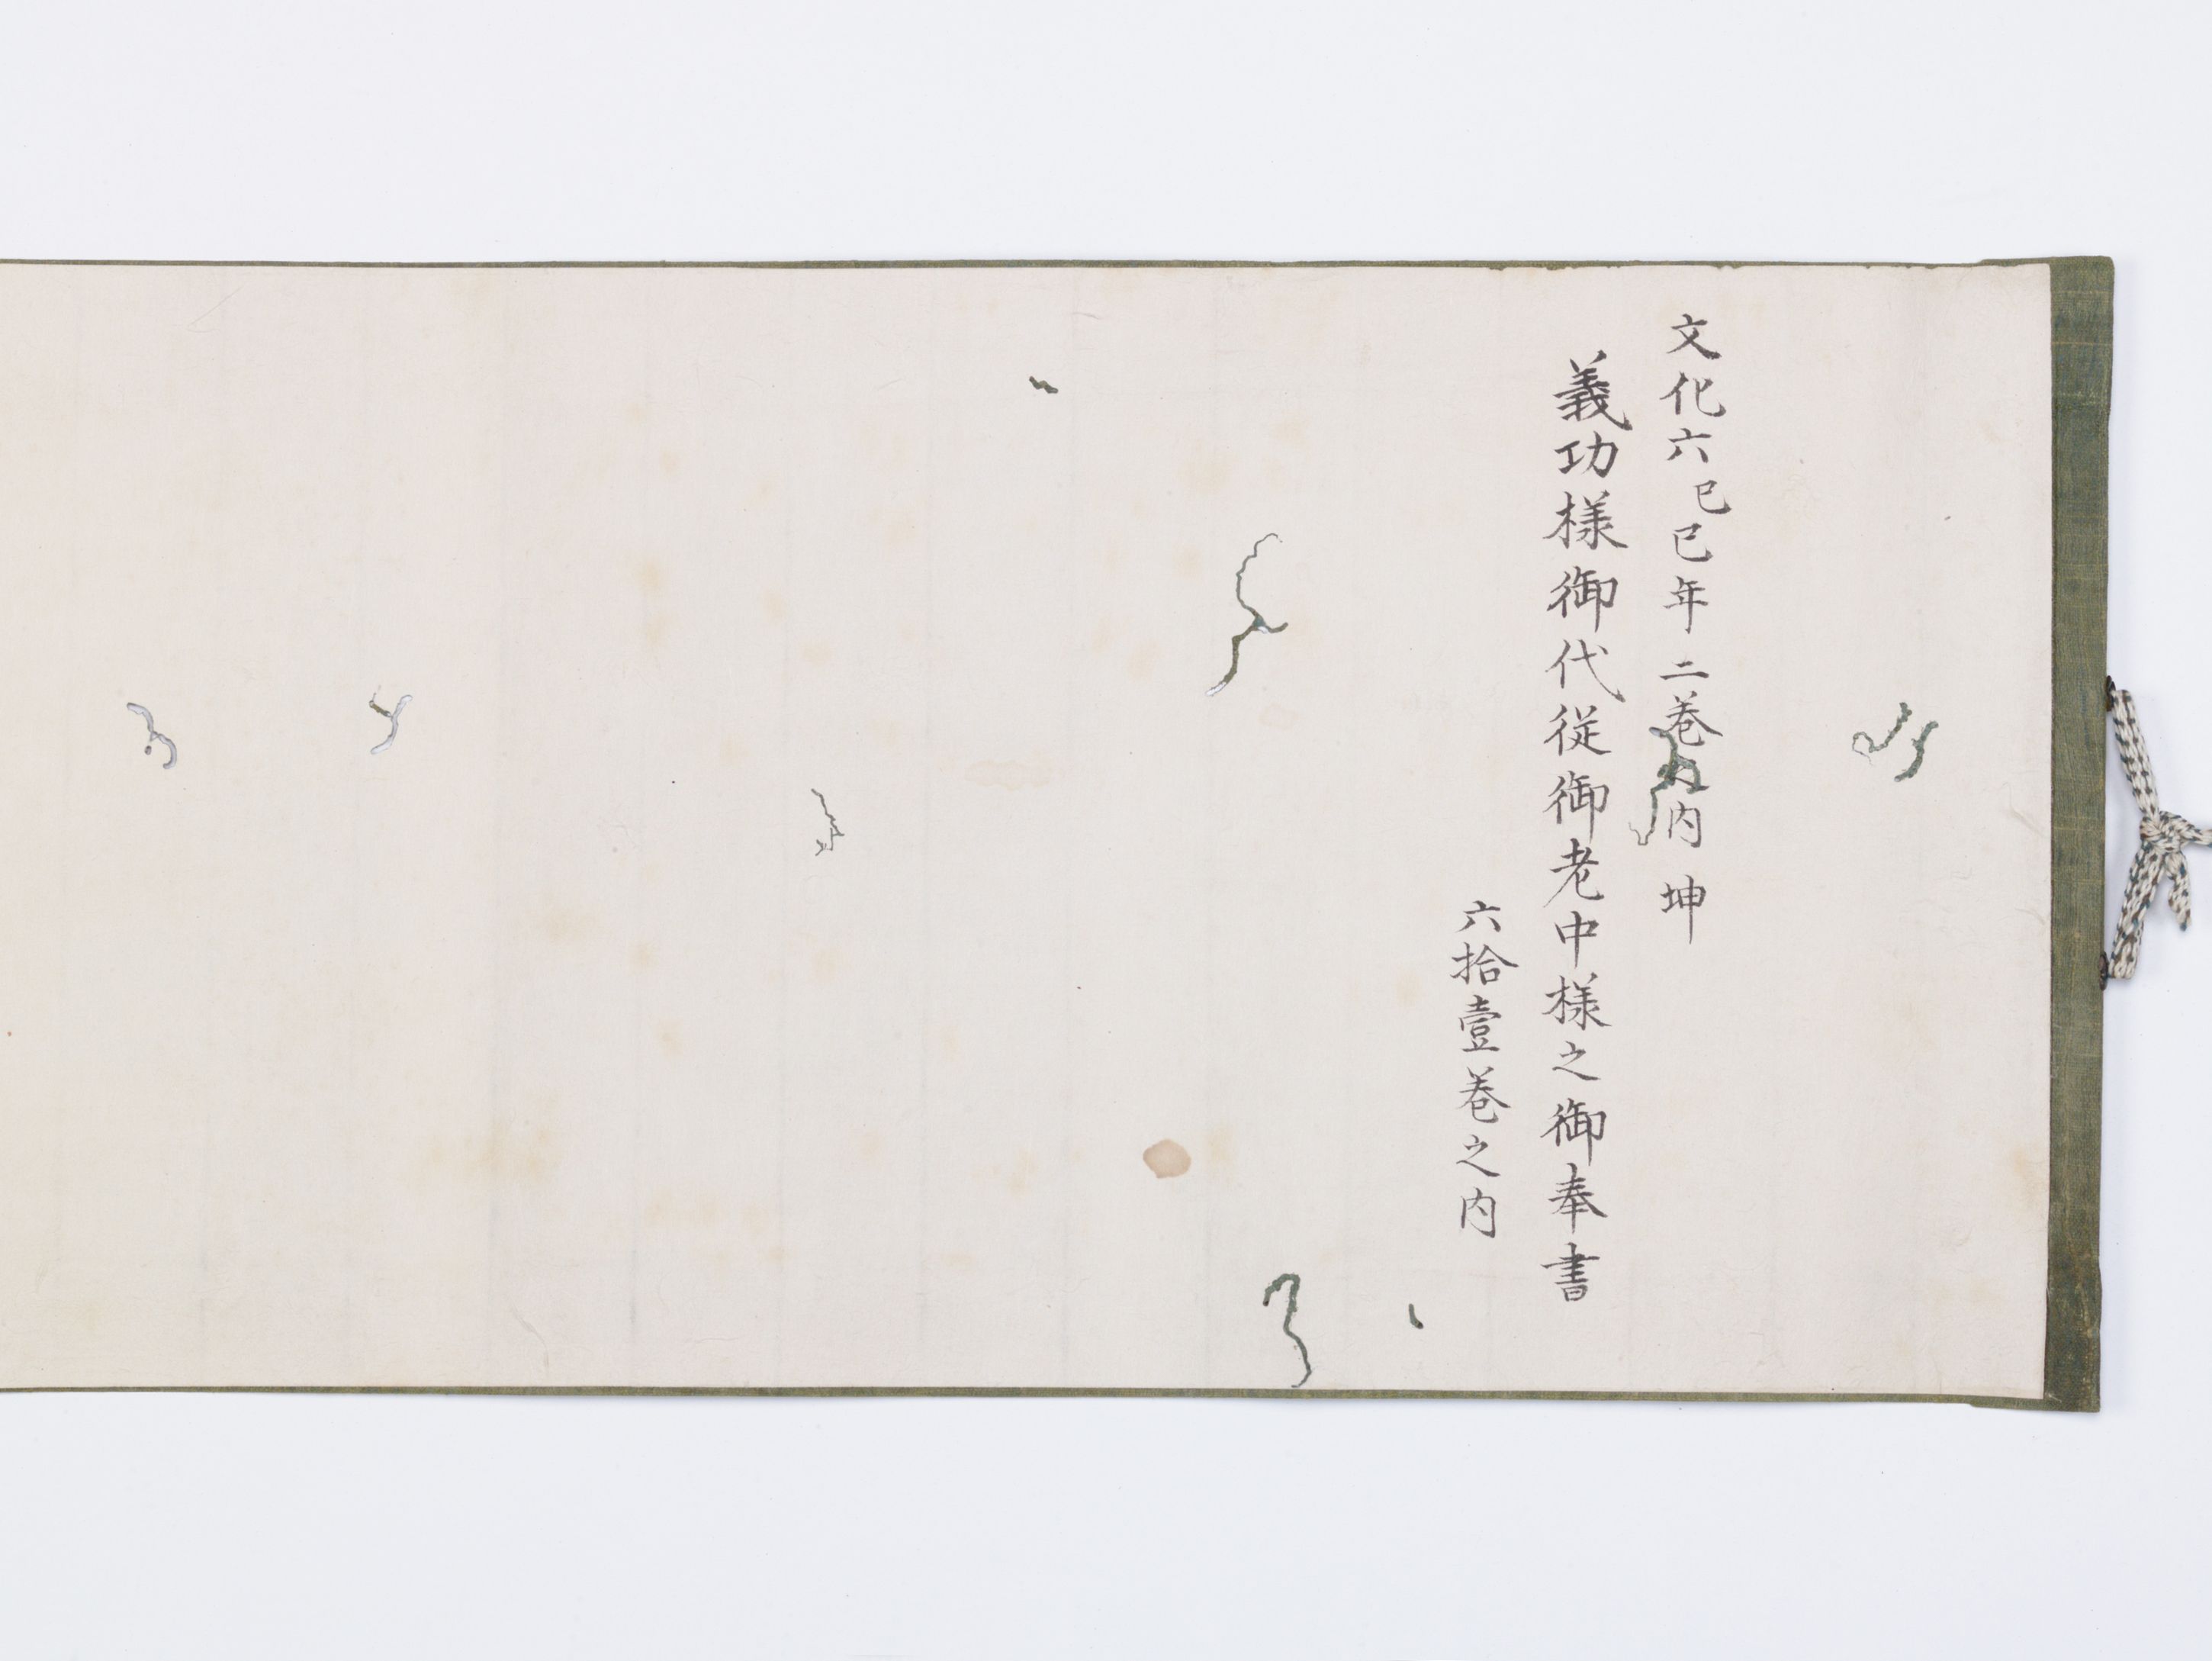 文化六己巳年 二巻之内 坤
義功様御代従御老中様之御奉書
六拾壹巻之内